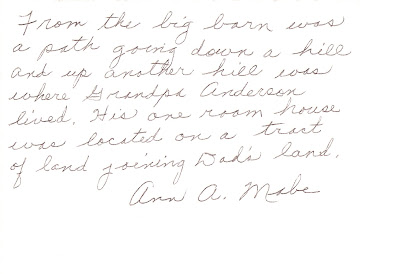 From the big barn was
a path going down a hill
and up another hill was
where Grandpa Anderson
lived. His one room house
was located on a tract
of land joining Dad's land.
Ann A. Mabe